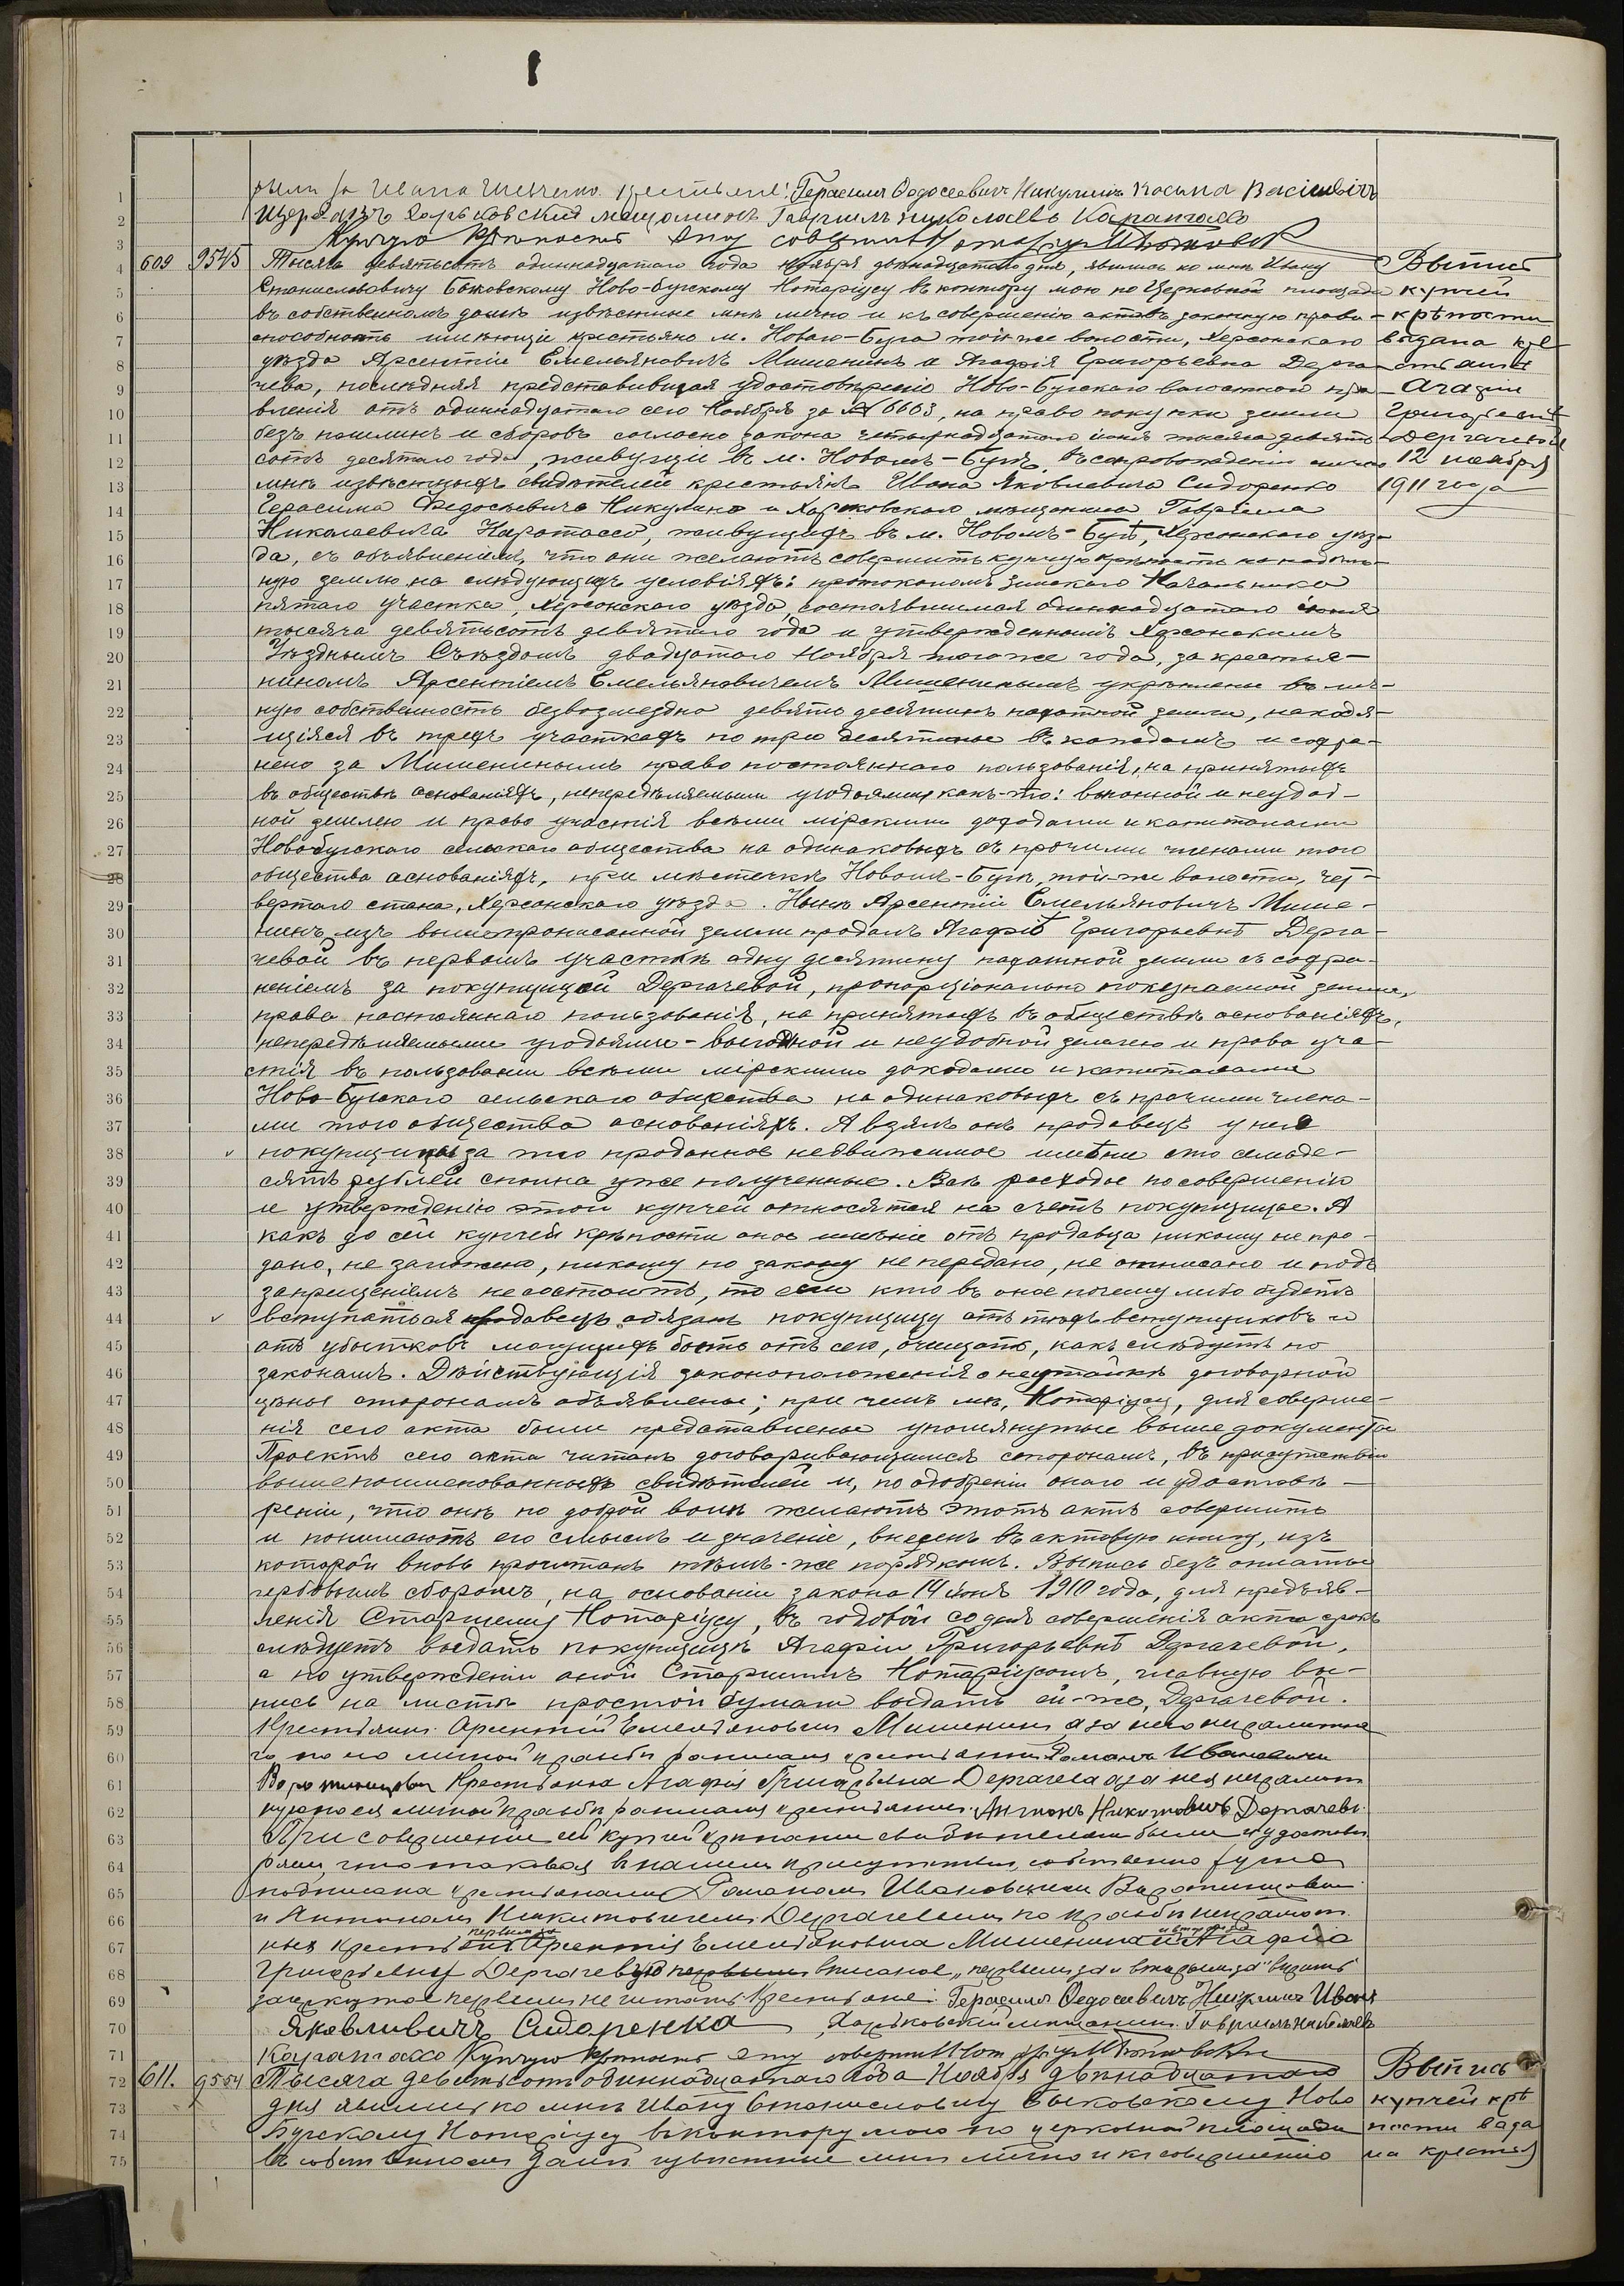 Ивана Крестьяне: Герасимъ Федосеевичъ Никулинъ Косьма Васильевичъ
Харьковскій мещанинъ Гавриилъ Николаевъ
Купчую крѣпость эту совершилъ Нотаріусъ
609 9545 Тысяча девятьсотъ одиннадцатаго года Ноября двѣнадцатаго дня, явились ко мнѣ Ивану Выпись
Станиславовичу Быковскому Ново-Бугскому Нотаріусу въ контору мою по Церковной площади купчей
въ собственномъ домѣ извѣстные мнѣ лично и къ совершенію актовъ законную право- крѣпости
способность имѣющіе крестьяне м. Новаго-Буга той-же волости, Херсонскаго выдана кре-
уѣзда Арсентій Емельяновичъ Мишенинъ и Агафія Григорьевна Дерга- стьянкѣ
чева, послѣдняя представившая удостовѣреніе Ново-Бугскаго волостного пра- Агафіи
вленія отъ одиннадцатаго сего Ноября за № 6663, на право покупки земли Григорьевнѣ
безъ пошлинъ и сборовъ согласно закона четырнадцатаго іюня тысяча девять- Дергачевой
сотъ десятаго года, живущіе въ м. Новомъ-Бугѣ, въ сопровожденіи лично 12 ноября
мнѣ извѣстныхъ свидѣтелей крестьянъ Ивана Яковлевича Сидоренко 1911 года
Герасима Федосьевича Никулина и Харьковскаго мѣщанина Гавріила
Николаевича живущихъ въ м. Новомъ-Бугѣ, Херсонскаго уѣз-
да, съ объявленіемъ, что они желаютъ совершить купчую крѣпость на надѣль-
ную землю на слѣдующихъ условіяхъ: протоколомъ Земскаго Начальника
пятаго участка, Херсонскаго уѣзда, состоявшимся одиннадцатаго іюня
тысяча девятьсотъ девятаго года и утвержденнымъ Херсонскимъ
Уѣзднымъ Съѣздомъ двадцатаго Ноября того же года, за крестья-
ниномъ Арсентіемъ Емельяновичемъ Мишенинымъ укрѣплены въ лич-
ную собственность безвозмездно девять десятинъ пахатной земли, находя-
щіяся въ трехъ участкахъ по три десятины въ каждомъ и сохра-
нено за Мишенинымъ право постояннаго пользованія, на принятыхъ
въ обществѣ основаніяхъ, непередѣляемыми угодьями, какъ-то: выгонной и неудоб-
ной землею и право участія всѣми мірскими доходами и капиталами
Новобугскаго сельскаго общества на одинаковыхъ съ прочими членами того
общества основаніяхъ, при мѣстечкѣ Новомъ-Бугѣ, той-же волости, чет-
вертаго стана, Херсонскаго уѣзда. Нынѣ Арсентій Емельяновичъ Мише-
нинъ, изъ вышепрописанной земли продалъ Агафіѣ Григорьевнѣ Дерга-
чевой въ первомъ участкѣ одну десятину пахатной земли съ сохра-
неніемъ за покупщицей Дергачевой, пропорціонально покупаемой земли,
права постояннаго пользованія, на принятыхъ въ обществѣ основаніяхъ,
непередѣляемыми угодьями - выгонной и неудобной землею и права уча-
стія въ пользованіи всѣми мірскими доходами и капиталами
Ново-Бугскаго сельскаго общества на одинаковыхъ съ прочими члена-
ми того общества основаніяхъ. А взялъ онъ продавецъ у нея
покупщицы за то проданное недвижимое имѣніе сто семьде-
сятъ рублей сполна уже полученные. Всѣ расходы по совершенію
и утвержденію этой купчей относятся на счетъ покупщицы. А
какъ до сей купчей крѣпости оное имѣніе отъ продавца никому не про-
дано, не заложено, никому по закону не передано, не отписано и подъ
запрещеніемъ не состоитъ, то если кто въ оное почему либо будетъ
вступаться продавецъ обязанъ покупщицу отъ тѣхъ вступщиковъ и
отъ убытковъ могущихъ быть отъ сего, очищать, какъ слѣдуетъ по
законамъ. Дѣйствующія законоположенія о неустойкѣ договорной
цѣны сторонамъ объявлены; при чемъ мнѣ, Нотаріусу, для соверше-
нія сего акта были представлены упомянутые выше документы
Проектъ сего акта читанъ договаривающимся сторонамъ, въ присутствіи
вышепоименованныхъ свидѣтелей и, по одобреніи онаго и удостовѣ-
реніи, что они по доброй волѣ желаютъ этотъ актъ совершить
и понимаютъ его смыслъ и значеніе, внесенъ въ актовую книгу, изъ
которой вновь прочитанъ тѣмъ-же порядкомъ. Выпись безъ оплаты
гербовымъ сборомъ, на основаніи закона 14 іюня 1910 года, для предъяв-
ленія Старшему Нотаріусу, въ годовой со дня совершенія акта срокъ
слѣдуетъ выдать покупщицѣ Агафіи Григорьевнѣ Дергачевой,
а по утвержденіи оной Старшимъ Нотаріусомъ, главную вы-
пись на листѣ простой бумаги выдать ей-же, Дергачевой.
Крестьянинъ Арсентій Емельяновичъ Мишенинъ, а за него неграмотна-
го, по его личной прозьбѣ роспісался крестьянинъ Романъ Ивановичъ
Крестьянка Агафія Григорьевна Дергачева а за нея неграмот
ную по ея личной прозьбѣ росписался крестьянинъ Антонъ Никитовичъ Дергачевъ.
При совершеніи сей купчей крѣпости свидѣтелями были и удостовѣ-
ряемъ, что таковая въ нашемъ присутствіи собственно ручно
подписана крестьянами Романомъ Ивановичемъ
и Антономъ Никитовичемъ Дергачевымъ по прозьбѣ неграмот
первымъ за и вторымъ за
ныхъ крестьянъ Арсентія Емельяновича Мишенина и Агафію
Григорьевну Дергачеву первымъ вписаное „первымъ за и вторымъ за" вѣрить
зачеркнутое первымъ не читать. Крестьяне: Герасимъ Федосеевичъ Никулинъ Иванъ
Яковливичъ Сидаренка Харьковскій мещанинъ Гавриилъ Николаевъ
Купчую крѣпость эту совершилъ Нотаріусъ
611. 9554 Тысяча девятьсотъ одиннадцатаго года Ноября двѣнадцатаго Выпись
дня явились ко мнѣ Ивану Станиславовичу Быковскому Ново купчей крѣ
Бугскому Нотаріусу въ контору мою по церковной площади пости выда
въ собственномъ домѣ извѣстные мнѣ лично и къ совершенію на крестья